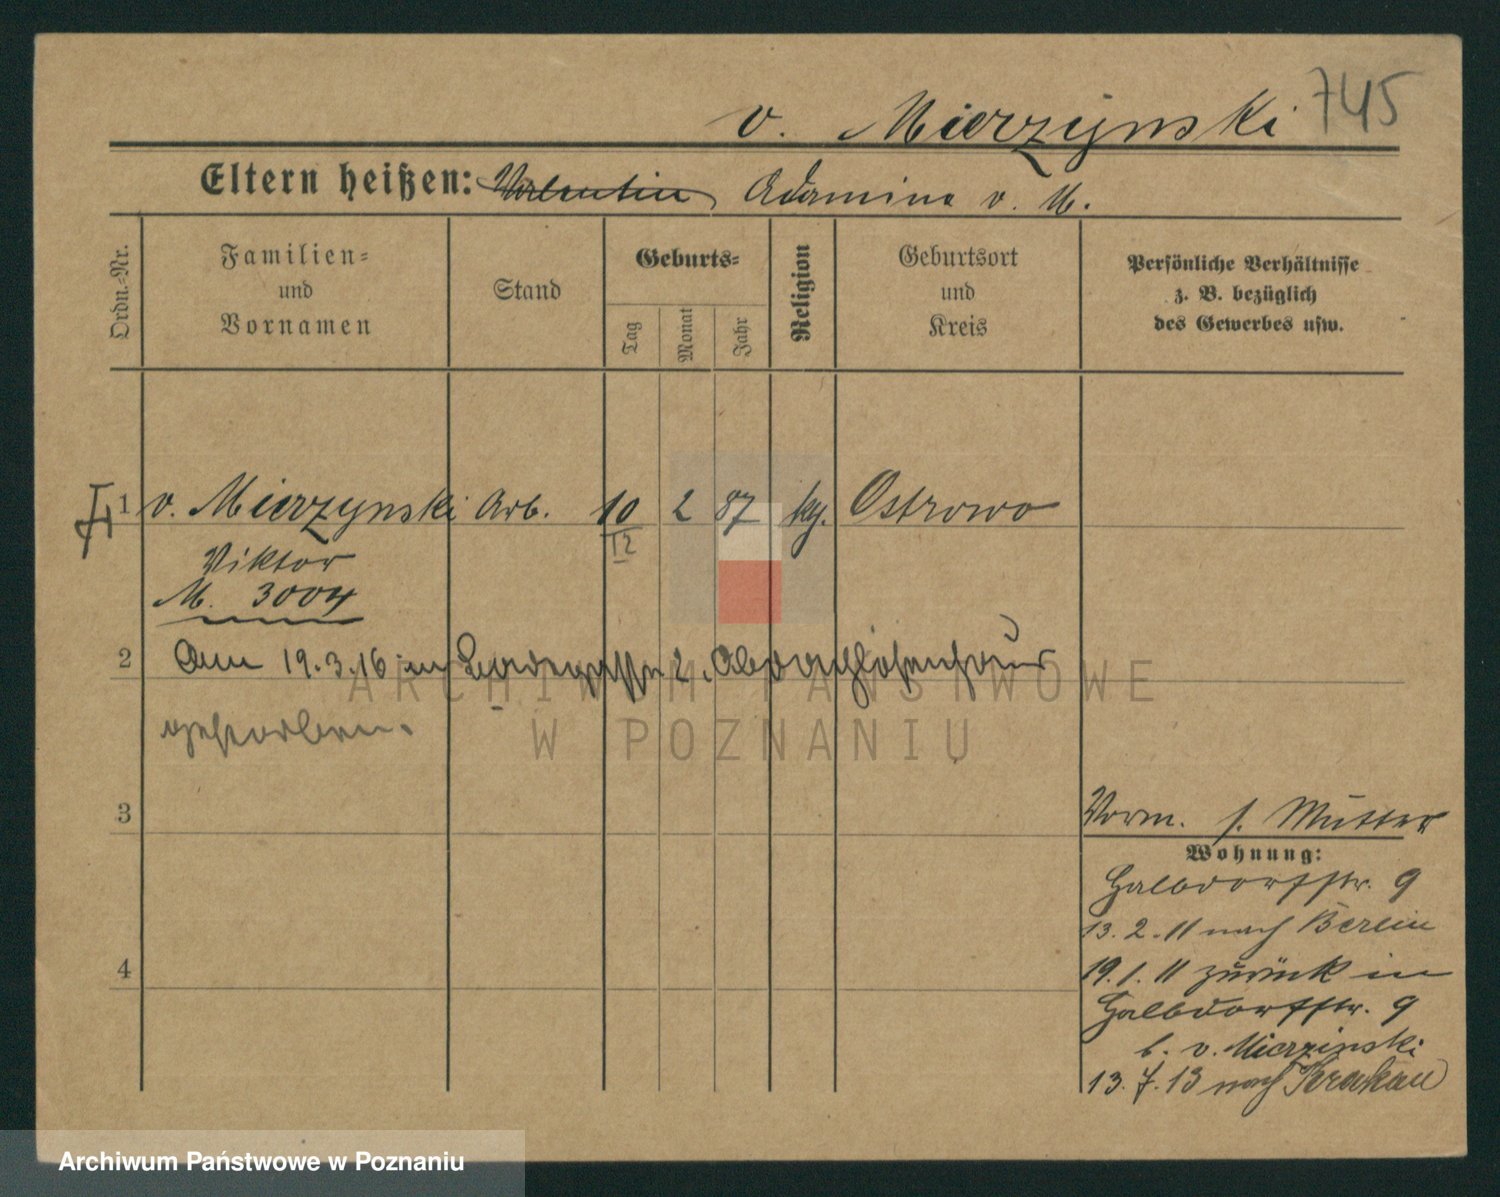 745
v. Mierzynski
Eltern heißen: Valentin Adamina v. M.
Ordn.-Nr.
Familien-
und
Vornamen
Stand
Geburts-
Tag
Monat
Jahr
Religion
Geburtsort
und
Kreis
Persönliche Verhältnisse
z. B. bezüglich
des Gewerbes usw.
1 v. Mierzynski Arb. 10 2 87 kg. Ostrowo
12
Viktor
M. 3004
2 Am 19.3.16 in 2, Obdachlosenhaus
gestorben.
3
Vorm. s. Mutter
Wohnung:
Halbdorfstr. 9
13. 2. 11 nach Berlin
4
19. 1. 11 zurück in
Halbdorfstr. 9
b. v. Mierzinski
13. 7. 13 nach Krakau
ARCHIWUM PAŃSTWOWE
W POZNANIU
Archiwum Państwowe w Poznaniu